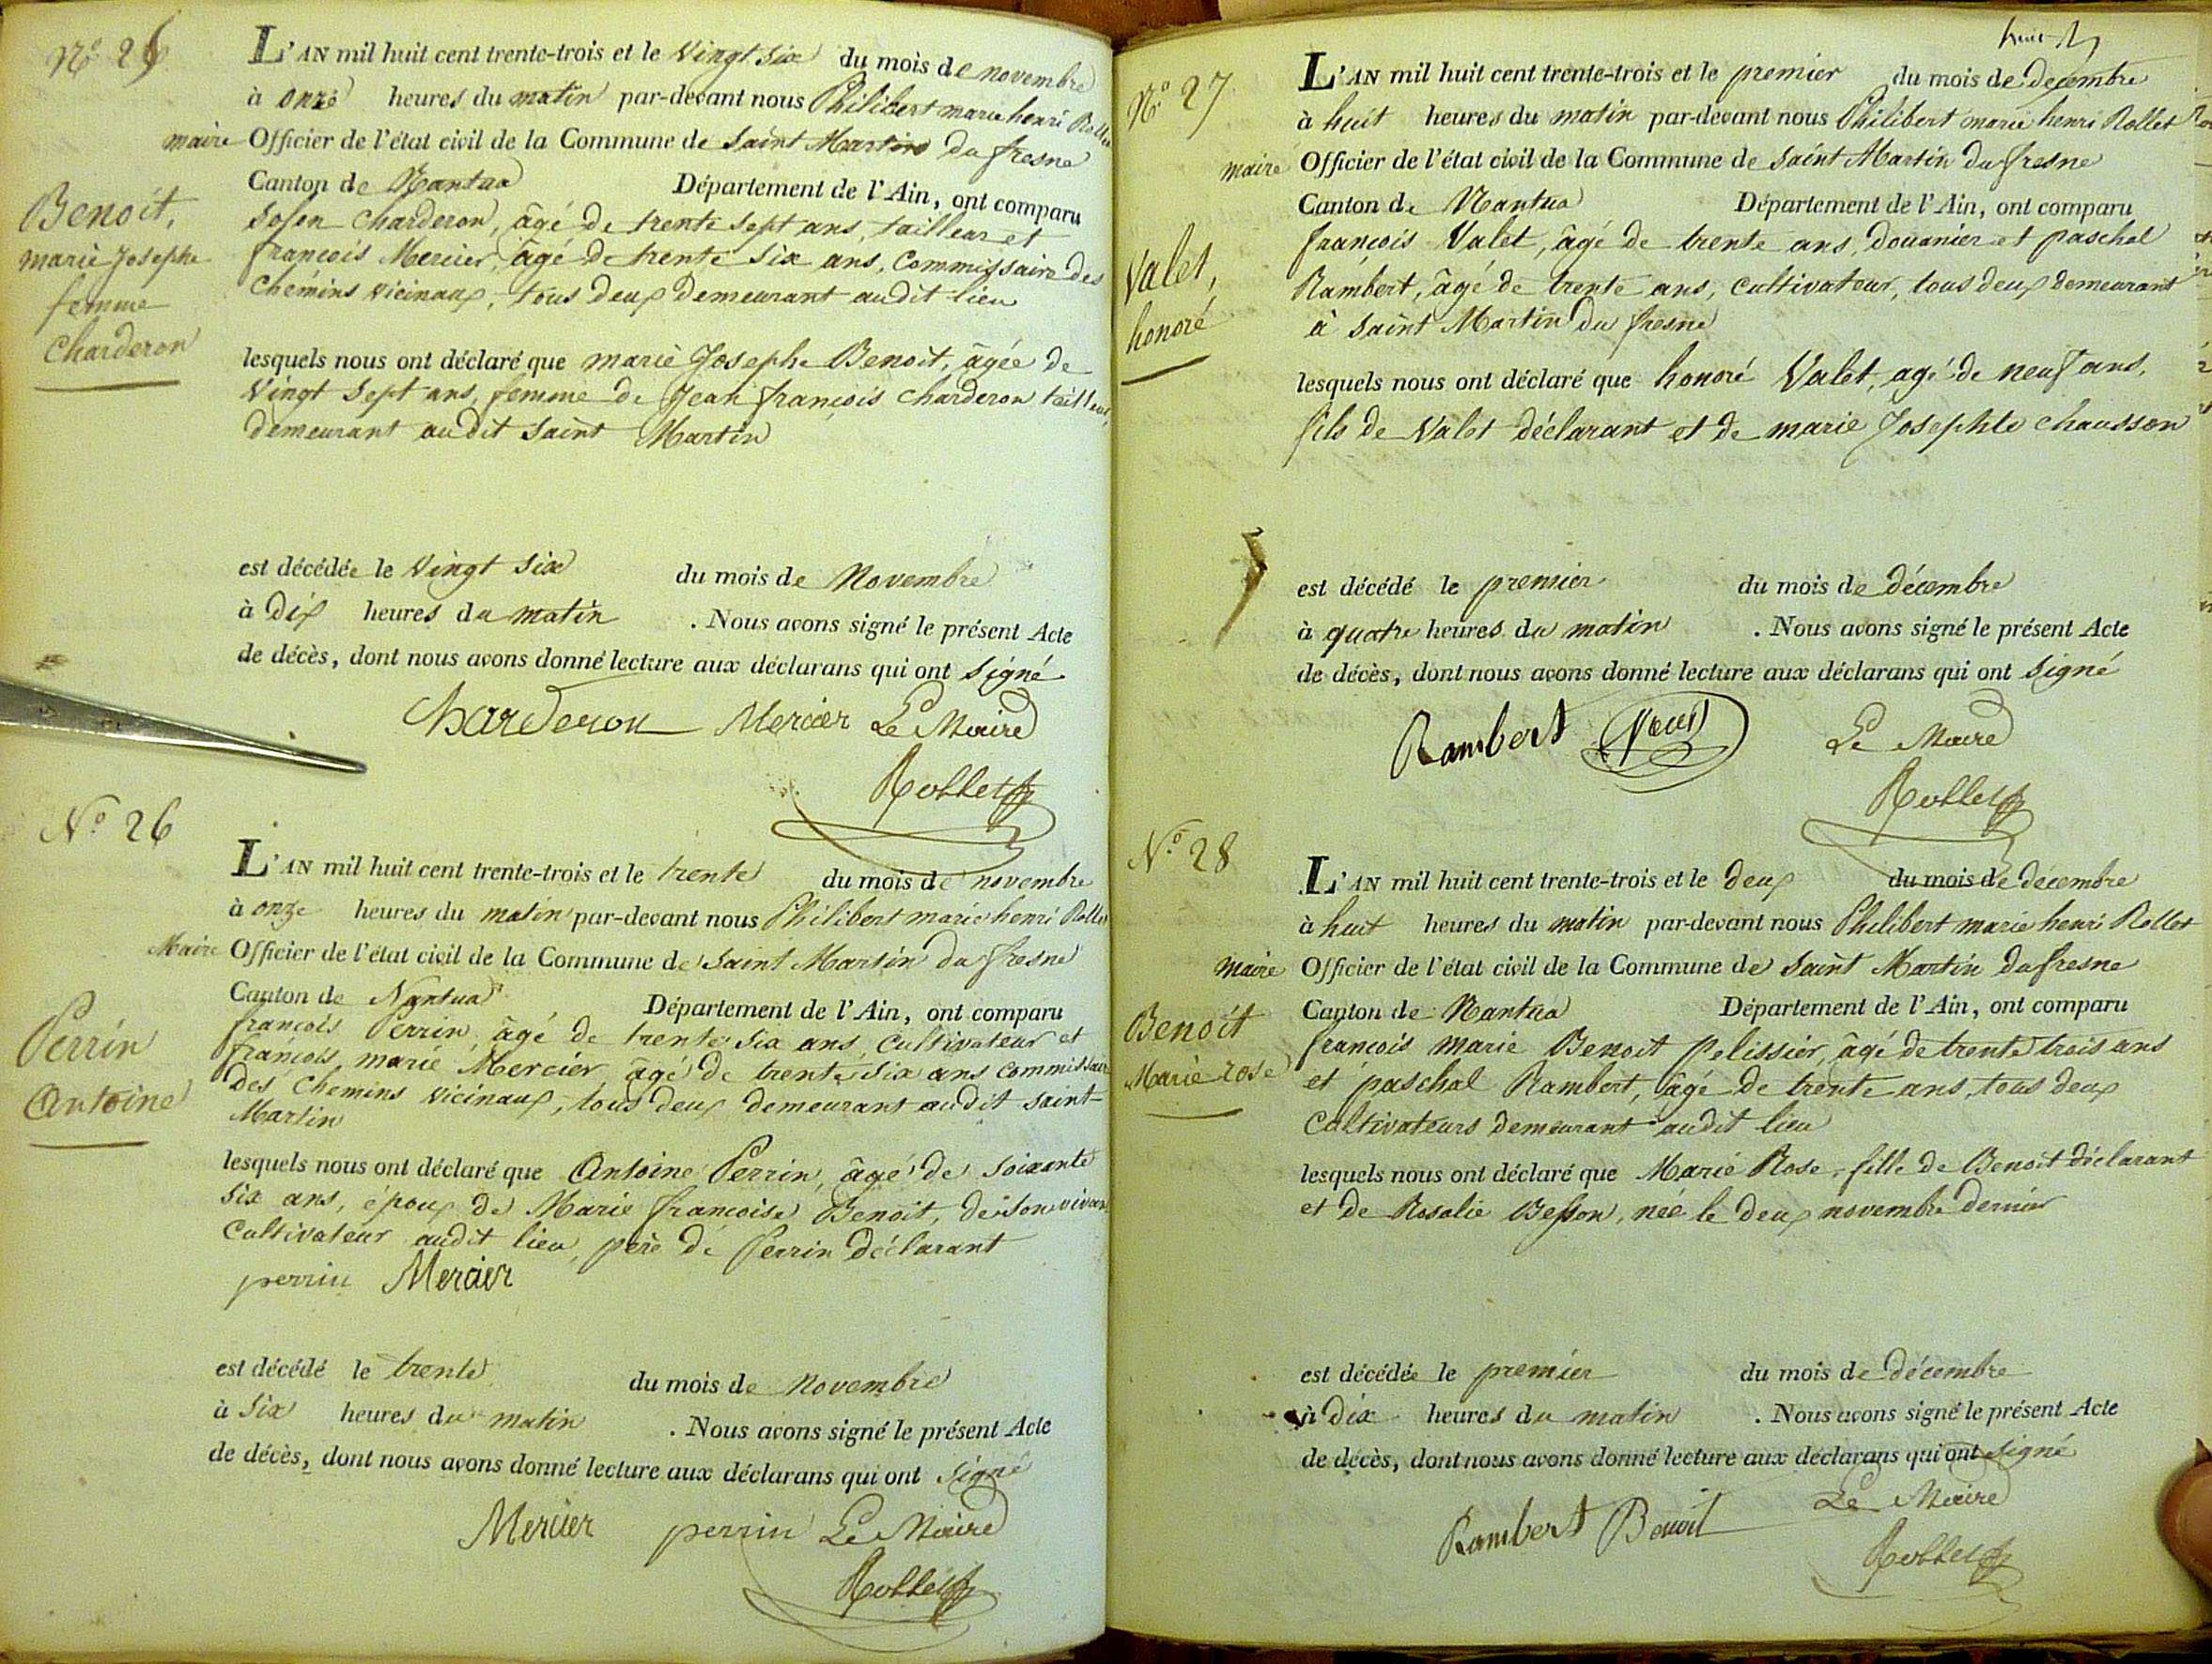 N.o 25
L'AN mil huit cent trente-trois et le vingt six du mois de novembre
à onze heures du matin par-devant nous Philibert marie henri Rollet
maire Officier de l'état civil de la Commune de saint Martin du fresne
Canton de Nantua Département de l'Ain, ont comparu
Benoit,
marie Josephe
femme
Charderon
charderon, âgé de trente sept ans, tailleur et
françois Mercier, âgé de trente six ans, commissaire des
chemins vicinaux, tous deux demeurant audit lieu
lesquels nous ont déclaré que marie Josephe Benoit, âgée de
vingt sept ans, femme de Jean françois charderon tailleur,
demeurant audit saint Martin
est décédée le vingt six du mois de Novembre
à dix heures du matin . Nous avons signé le présent Acte
de décès, dont nous avons donné lecture aux déclarans qui ont signé
Charderon Mercier Le Maire
Rollet
N.o 26
L'AN mil huit cent trente-trois et le trente du mois de novembre
à onze heures du matin par-devant nous Philibert marie henri Rollet
Maire Officier de l'état civil de la Commune de saint Martin du fresne
Canton de Nantua Département de l'Ain, ont comparu
Perrin
Antoine
françois Perrin, âgé de trente six ans, cultivateur et
françois marie Mercier, âgé de trente six ans commissaire
des chemins vicinaux, tous deux demeurant audit saint
Martin
lesquels nous ont déclaré que Antoine Perrin, âgé de soixante
six ans, époux de Marie françoise Benoit, de son vivant
cultivateur audit lieu, père de Perrin déclarant
perrin Mercier
est décédé le trente du mois de Novembre
à six heures du matin . Nous avons signé le présent Acte
de décès, dont nous avons donné lecture aux déclarans qui ont signé
Mercier perrin Le Maire
Rollet
huit
N.o 27
L'AN mil huit cent trente-trois et le premier du mois de decembre
à huit heures du matin par-devant nous Philibert marie henri Rollet
maire Officier de l'état civil de la Commune de saint Martin du fresne
Canton de Nantua Département de l'Ain, ont comparu
Valet,
honoré
françois Valet, âgé de trente ans, douanier et paschal
Rambert, âgé de trente ans, cultivateur, tous deux demeurant
à saint Martin du fresne
lesquels nous ont déclaré que honoré Valet, agé de neuf ans,
fils de Valet déclarant et de marie Josephte chausson
est décédé le premier du mois de décembre
à quatre heures du matin . Nous avons signé le présent Acte
de décès, dont nous avons donné lecture aux déclarans qui ont signé
Rambert Le Maire
Rollet
N.o 28
L'AN mil huit cent trente-trois et le deux du mois de decembre
à huit heures du matin par-devant nous Philibert marie henri Rollet
maire Officier de l'état civil de la Commune de saint Martin du fresne
Canton de Nantua Département de l'Ain, ont comparu
Benoit
Marie rose
françois marie Benoit Pelissier, âgé de trente trois ans
et paschal Rambert, âgé de trente ans, tous deux
cultivateurs demeurant audit lieu
lesquels nous ont déclaré que Marie Rose, fille de Benoit déclarant
et de Rosalie Besson, née le deux novembre dernier
est décédée le premier du mois de décembre
à dix heures du matin . Nous avons signé le présent Acte
de décès, dont nous avons donné lecture aux déclarans qui ont signé
Rambert Benoit Le Maire
Rollet